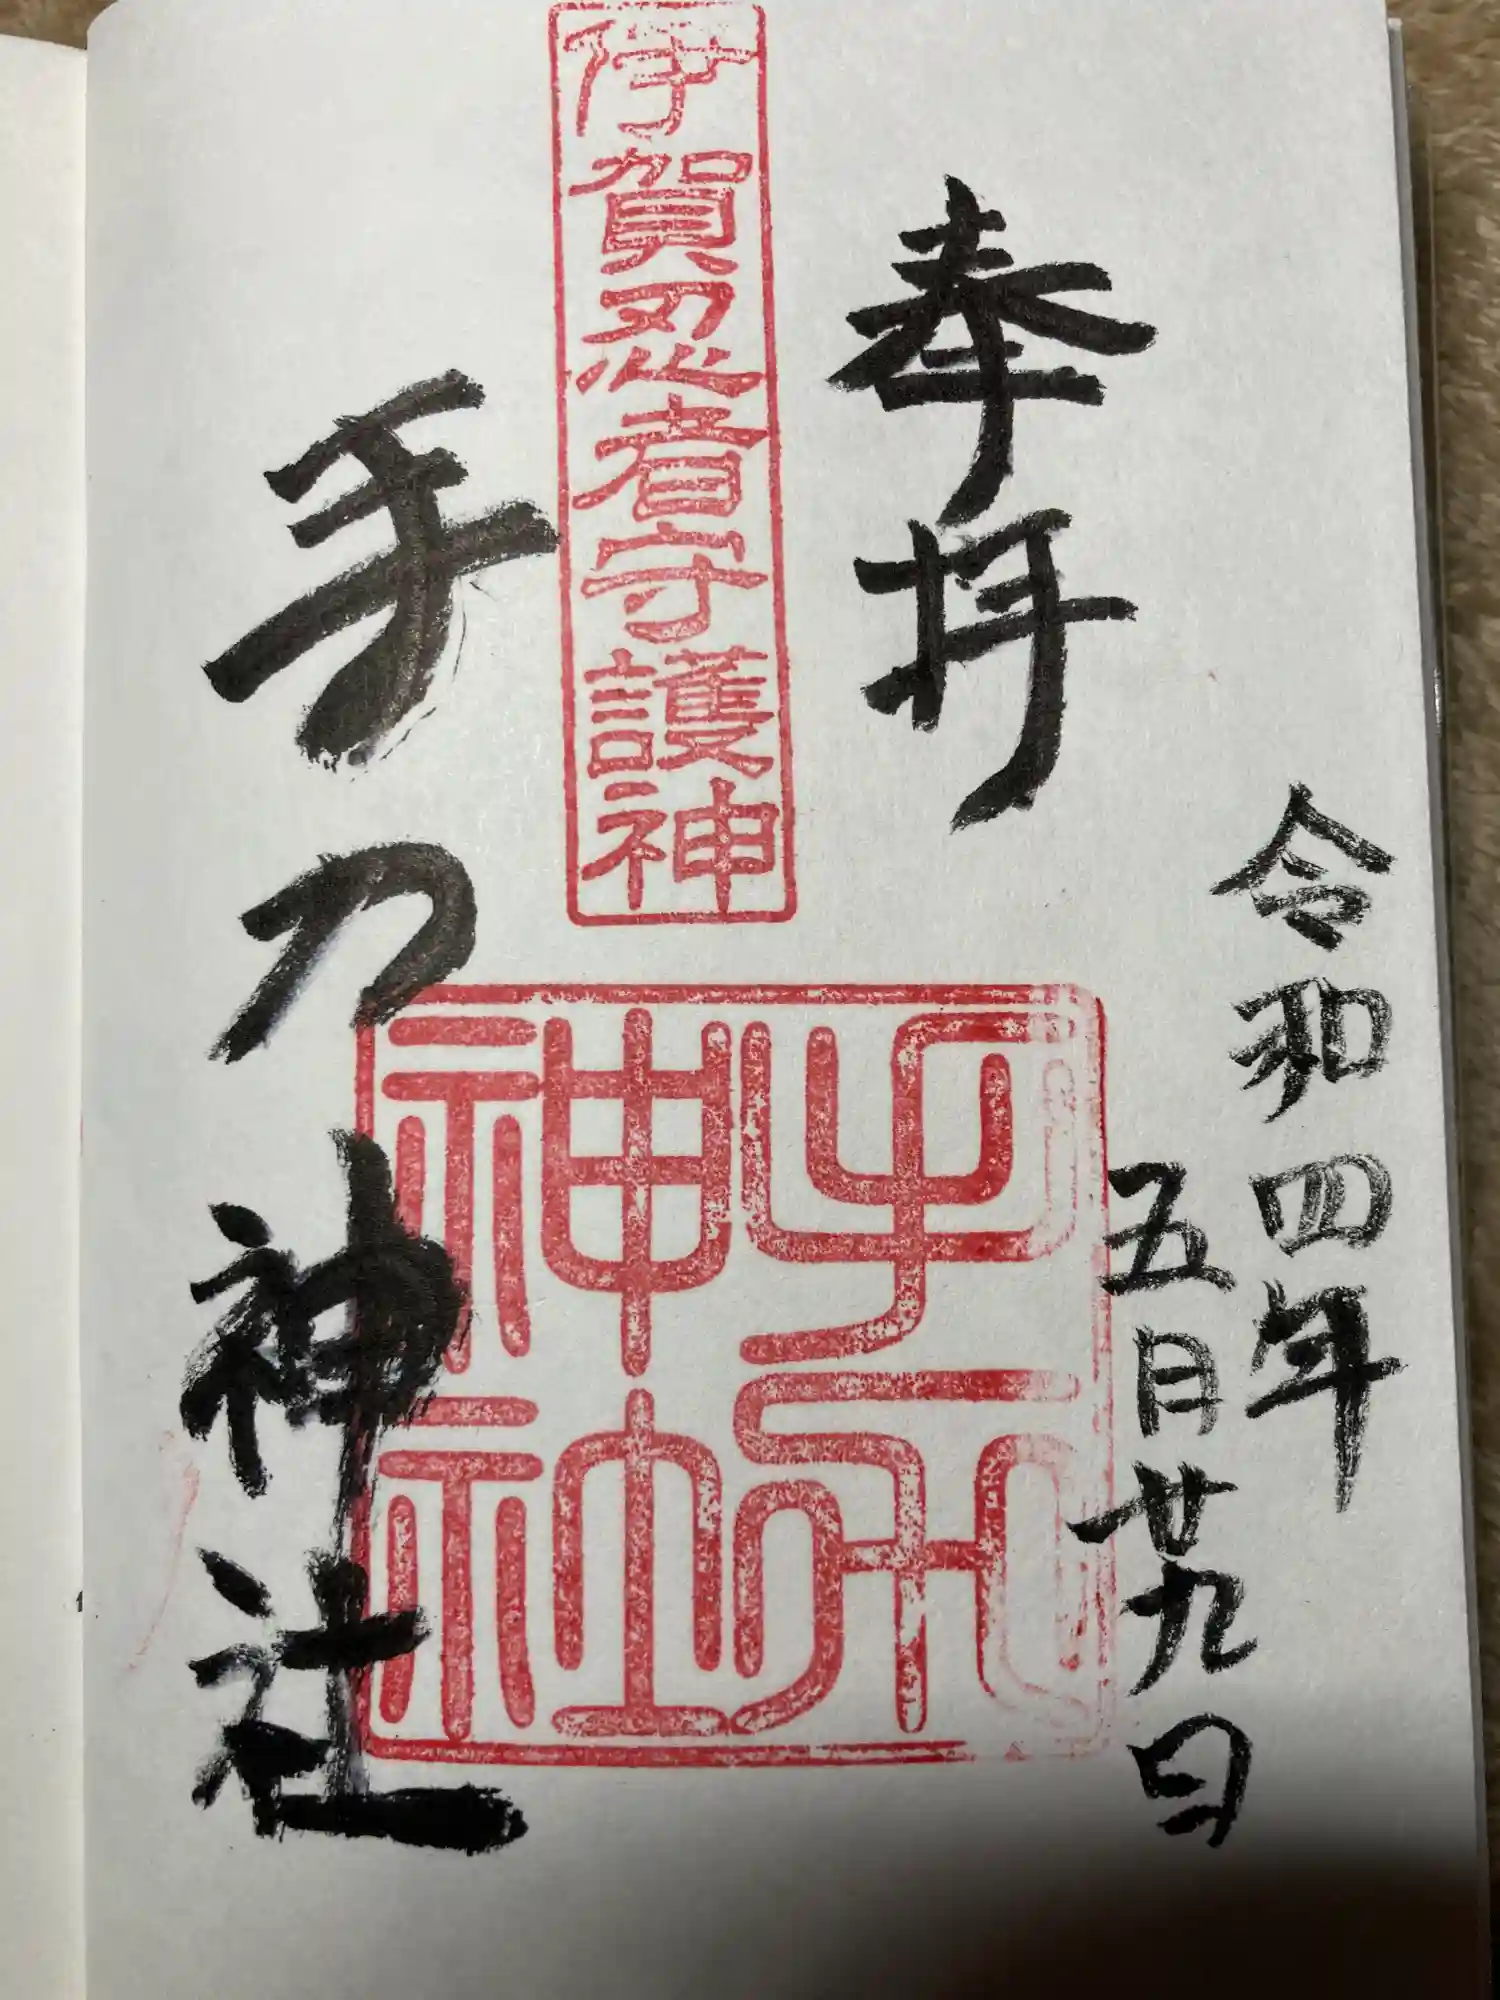 令和四年
五月廿九日
奉拝
伊賀忍者守護神
手力
神社
手力神社